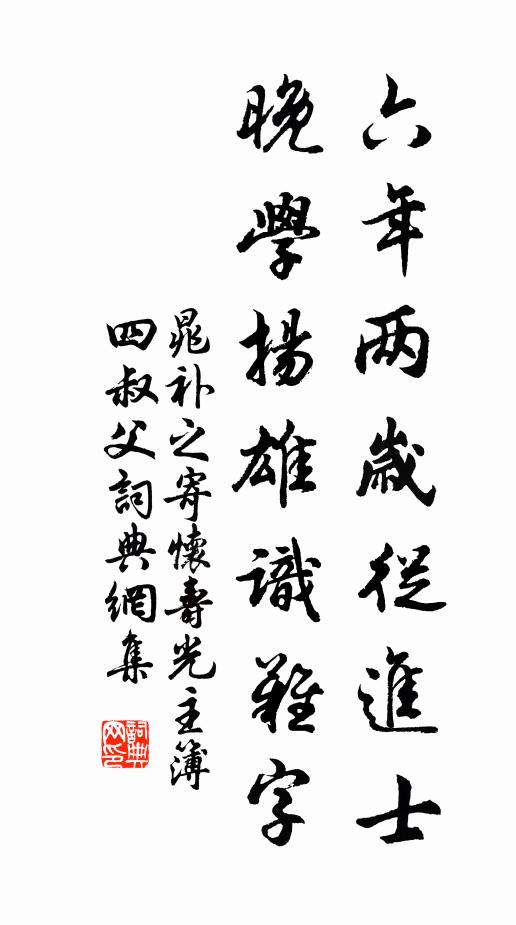 六年两歲從進士
晚學揚雄識難字
晁补之寄懷壽光主簿
四叔父詞典網集
詞典